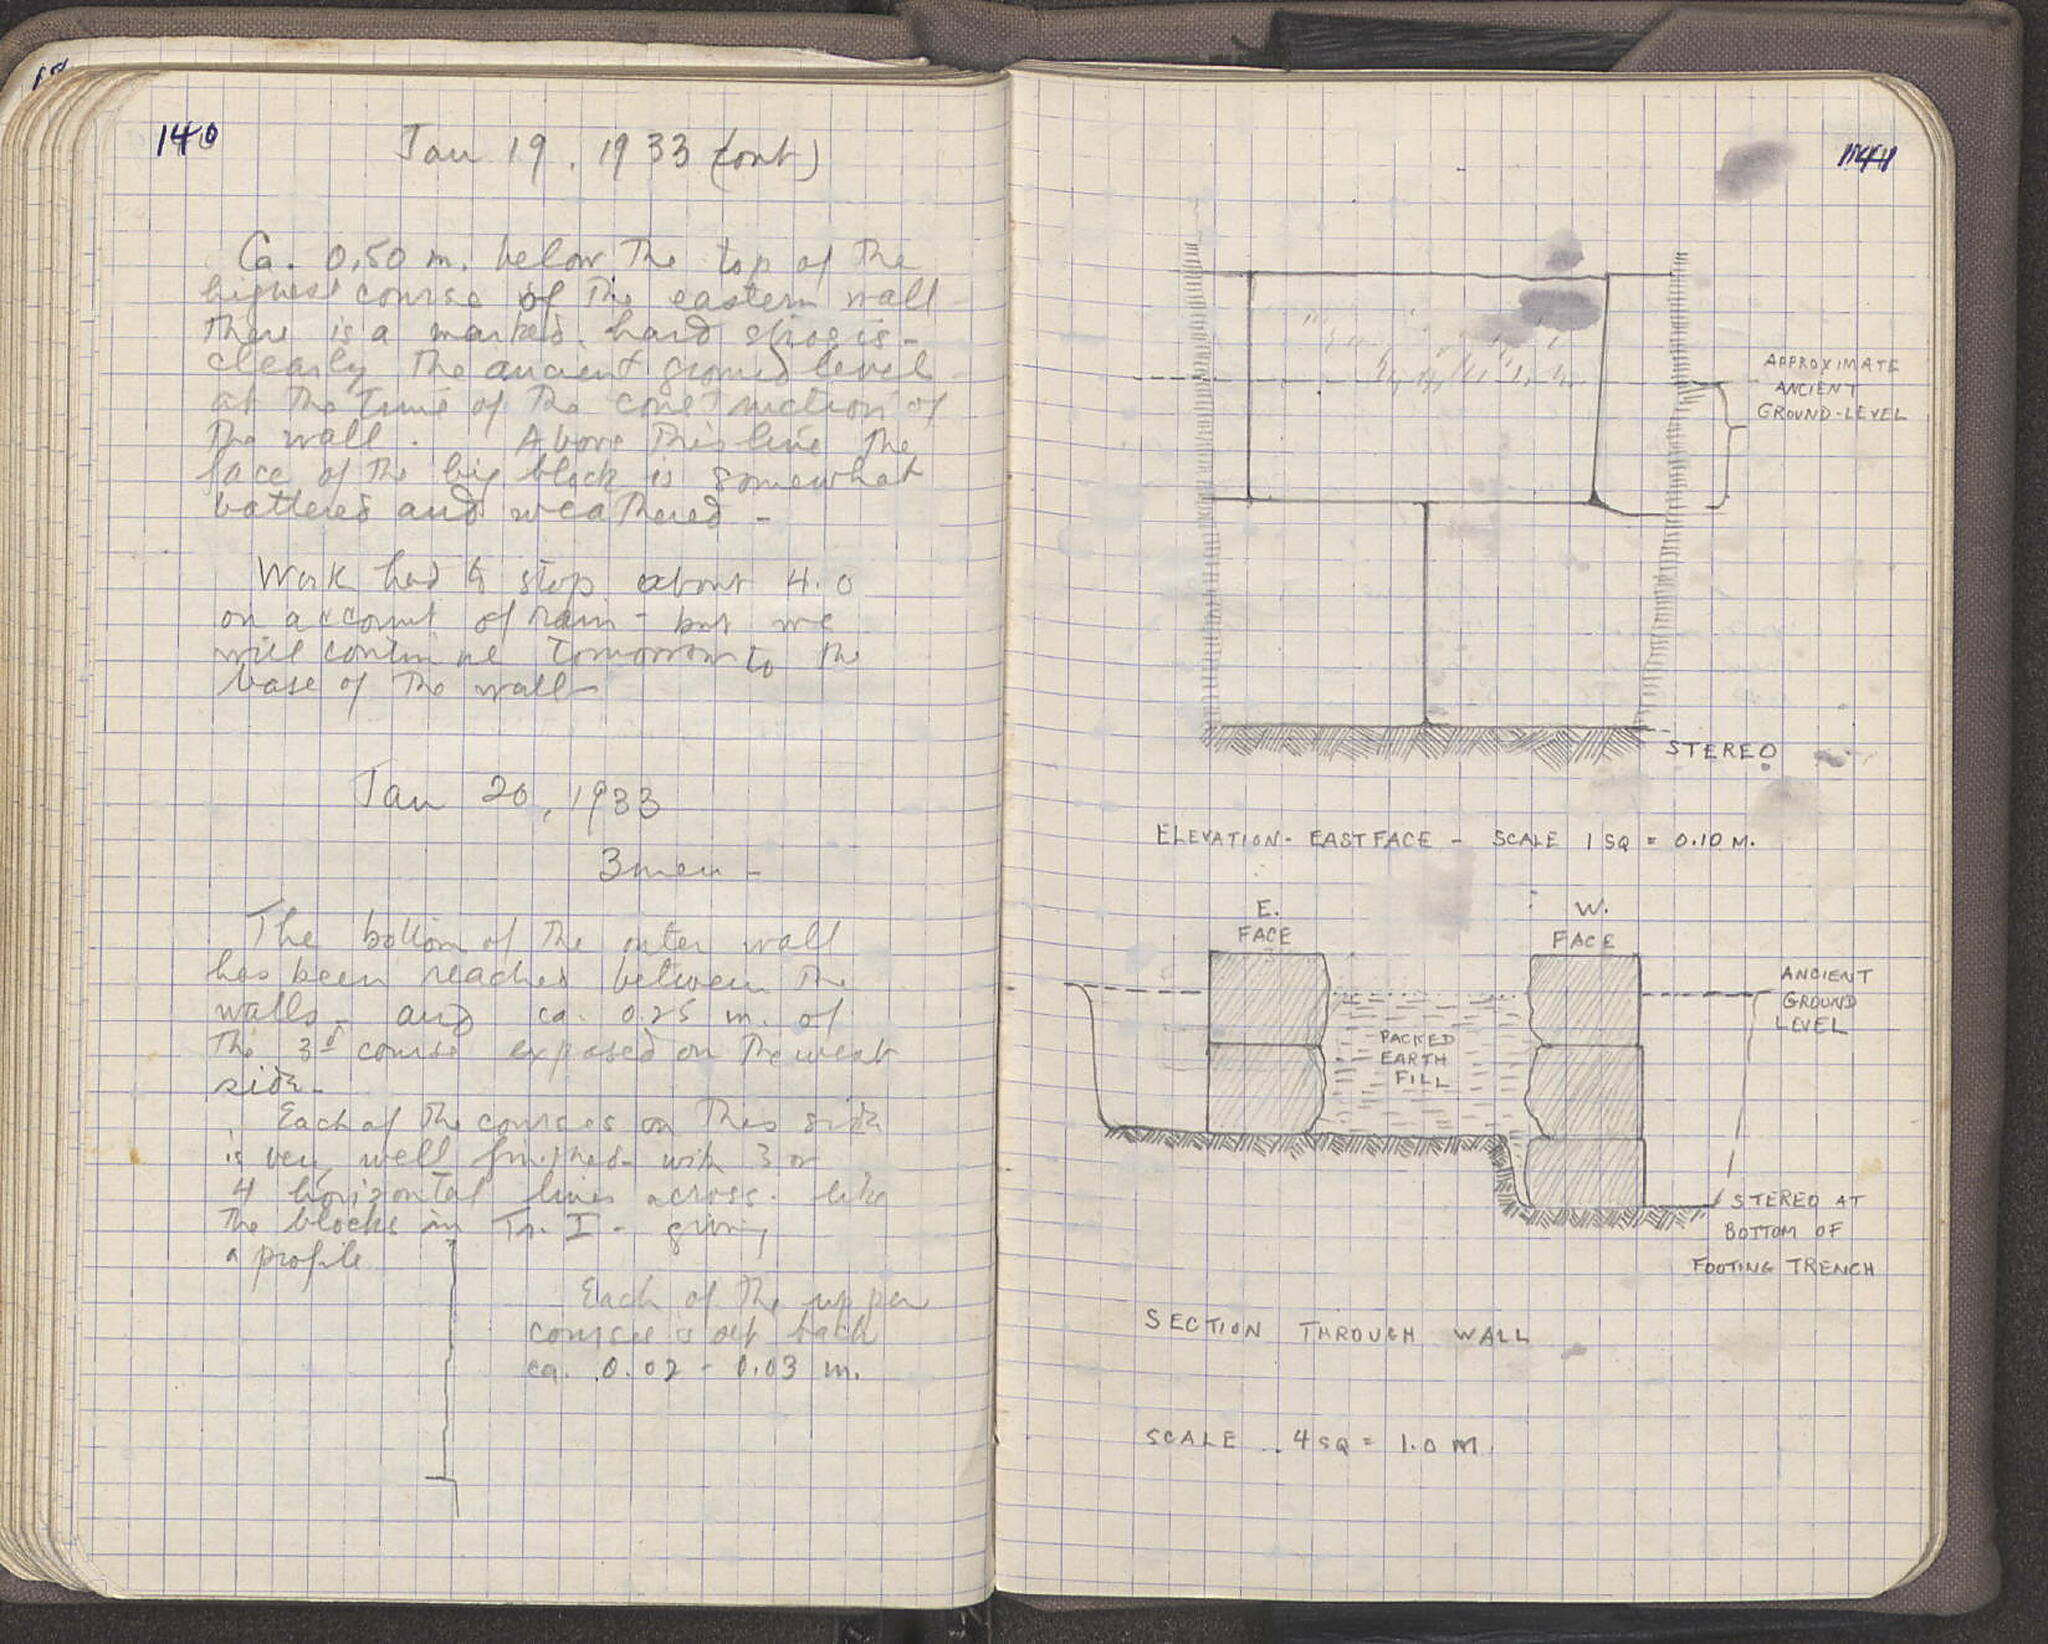 140
Jan 19, 1933 (cont)
Ca. 0.50 m. below the top of the
highest course of the eastern wall
there is a marked, hard strosis -
clearly the ancient ground level
at the time of the construction of
the wall. Above this line the
face of the big block is somewhat
battered and weathered -
Work had to stop about 4.0
on account of rain - but we
will continue tomorrow to the
base of the wall -
Jan 20, 1933
3 men -
The bottom of the outer wall
has been reached between the
walls - and ca. 0.25 m. of
the 3d course exposed on the west
side -
Each of the courses on this side
is very well finished - with 3 or
4 horizontal lines across - like
the blocks in Tr. I - giving
a profile
Each of the upper
courses is set back
ca. 0.02 - 0.03 m.
141
APPROXIMATE
ANCIENT
GROUND-LEVEL
STEREO
ELEVATION - EAST FACE - SCALE 1 SQ = 0.10 M.
E.
FACE
W.
FACE
ANCIENT
GROUND
LEVEL
PACKED
EARTH
FILL
STEREO AT
BOTTOM OF
FOOTING TRENCH
SECTION THROUGH WALL
SCALE 4 SQ = 1.0 M.